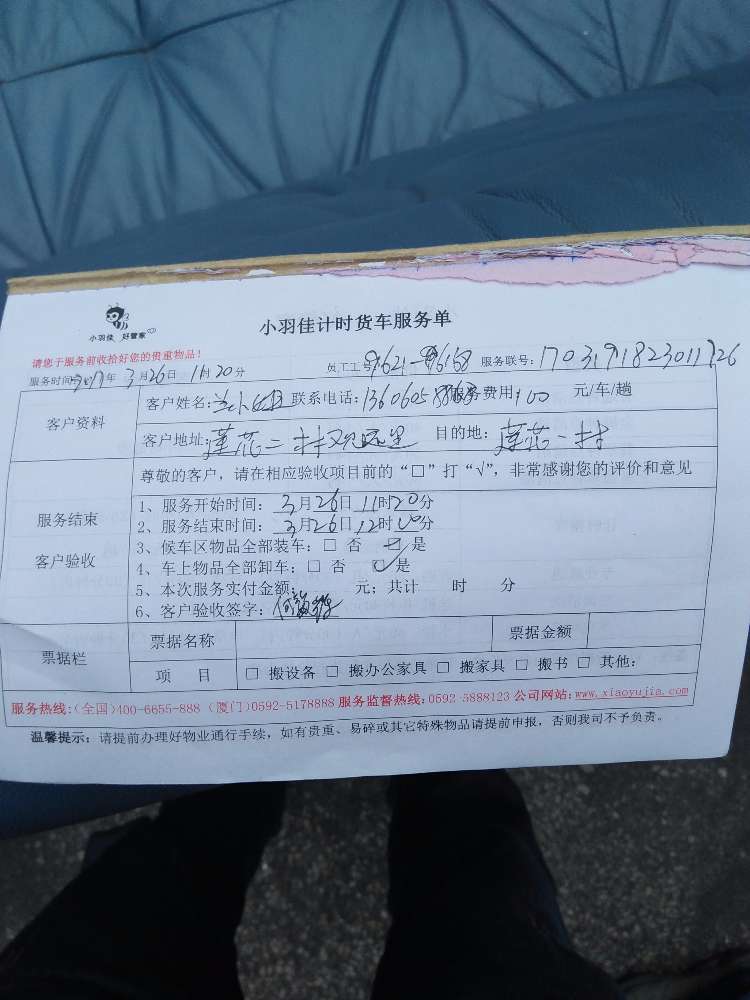 小羽佳 好管家
小羽佳计时货车服务单
请您于服务前收拾好您的贵重物品!
服务时间:2017年3月26日 11时20分 员工工号:91621-96158 服务联号:170319182301726
客户资料
客户姓名:兰小姐 联系电话:13606058863 服务费用:100 元/车/趟
客户地址:莲花二村观远里 目的地:莲花一村
服务结束
客户验收
尊敬的客户,请在相应验收项目前的“□”打“√”,非常感谢您的评价和意见
1、服务开始时间:3月26日11时20分
2、服务结束时间:3月26日12时00分
3、候车区物品全部装车:□ 否 ☑ 是
4、车上物品全部卸车:□ 否 ☑ 是
5、本次服务实付金额: 元;共计 时 分
6、客户验收签字:
票据栏
票据名称 票据金额
项 目 □ 搬设备 □ 搬办公家具 □ 搬家具 □ 搬书 □ 其他:
服务热线:(全国)400-6655-888 (厦门)0592-5178888 服务监督热线:0592-5888123 公司网站:www.xiaoyujia.com
温馨提示:请提前办理好物业通行手续,如有贵重、易碎或其它特殊物品请提前申报,否则我司不予负责。